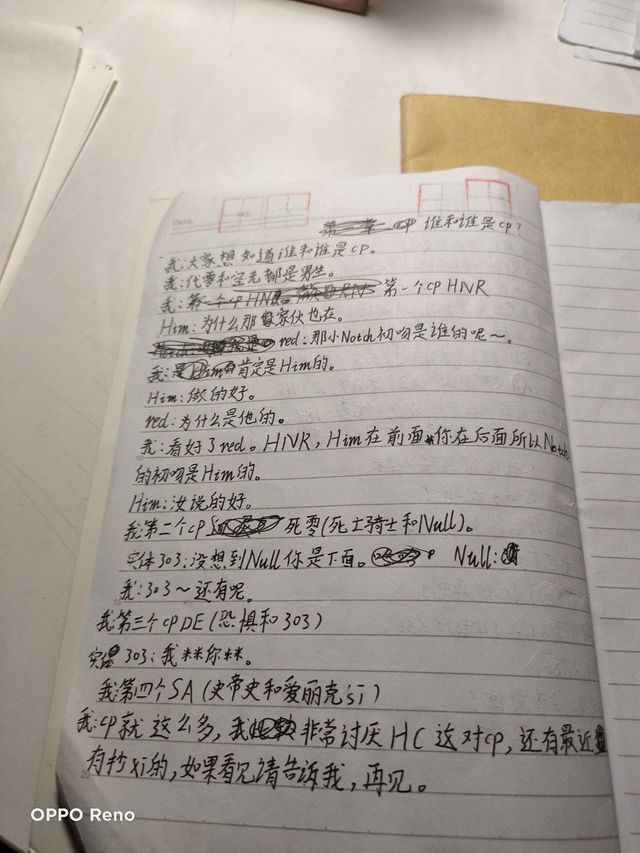 Date.
cp 谁和谁是cp?
我:大家想知道谁和谁是cp。
我:代零和空无都是男生。
我:第一个cp HNR
Him:为什么那家伙也在。
red:那小Notch初吻是谁的呢～。
我:肯定是Him的。
Him:做的好。
red:为什么是他的。
我:看好了red。HNR,Him在前面,你在后面所以Notch
的初吻是Him的。
Him:汝说的好。
我第二个cp 死零(死亡骑士和Null)。
实体303:没想到Null你是下面。 Null:
我:303～还有呢。
我第三个cp DE(恐惧和303)
实体303:我**你**。
我第四个SA(史帝史和爱丽克si)
我:cp就这么多,我非常讨厌HC这对cp,还有最近
有抄xi的,如果看见请告诉我,再见。
OPPO Reno